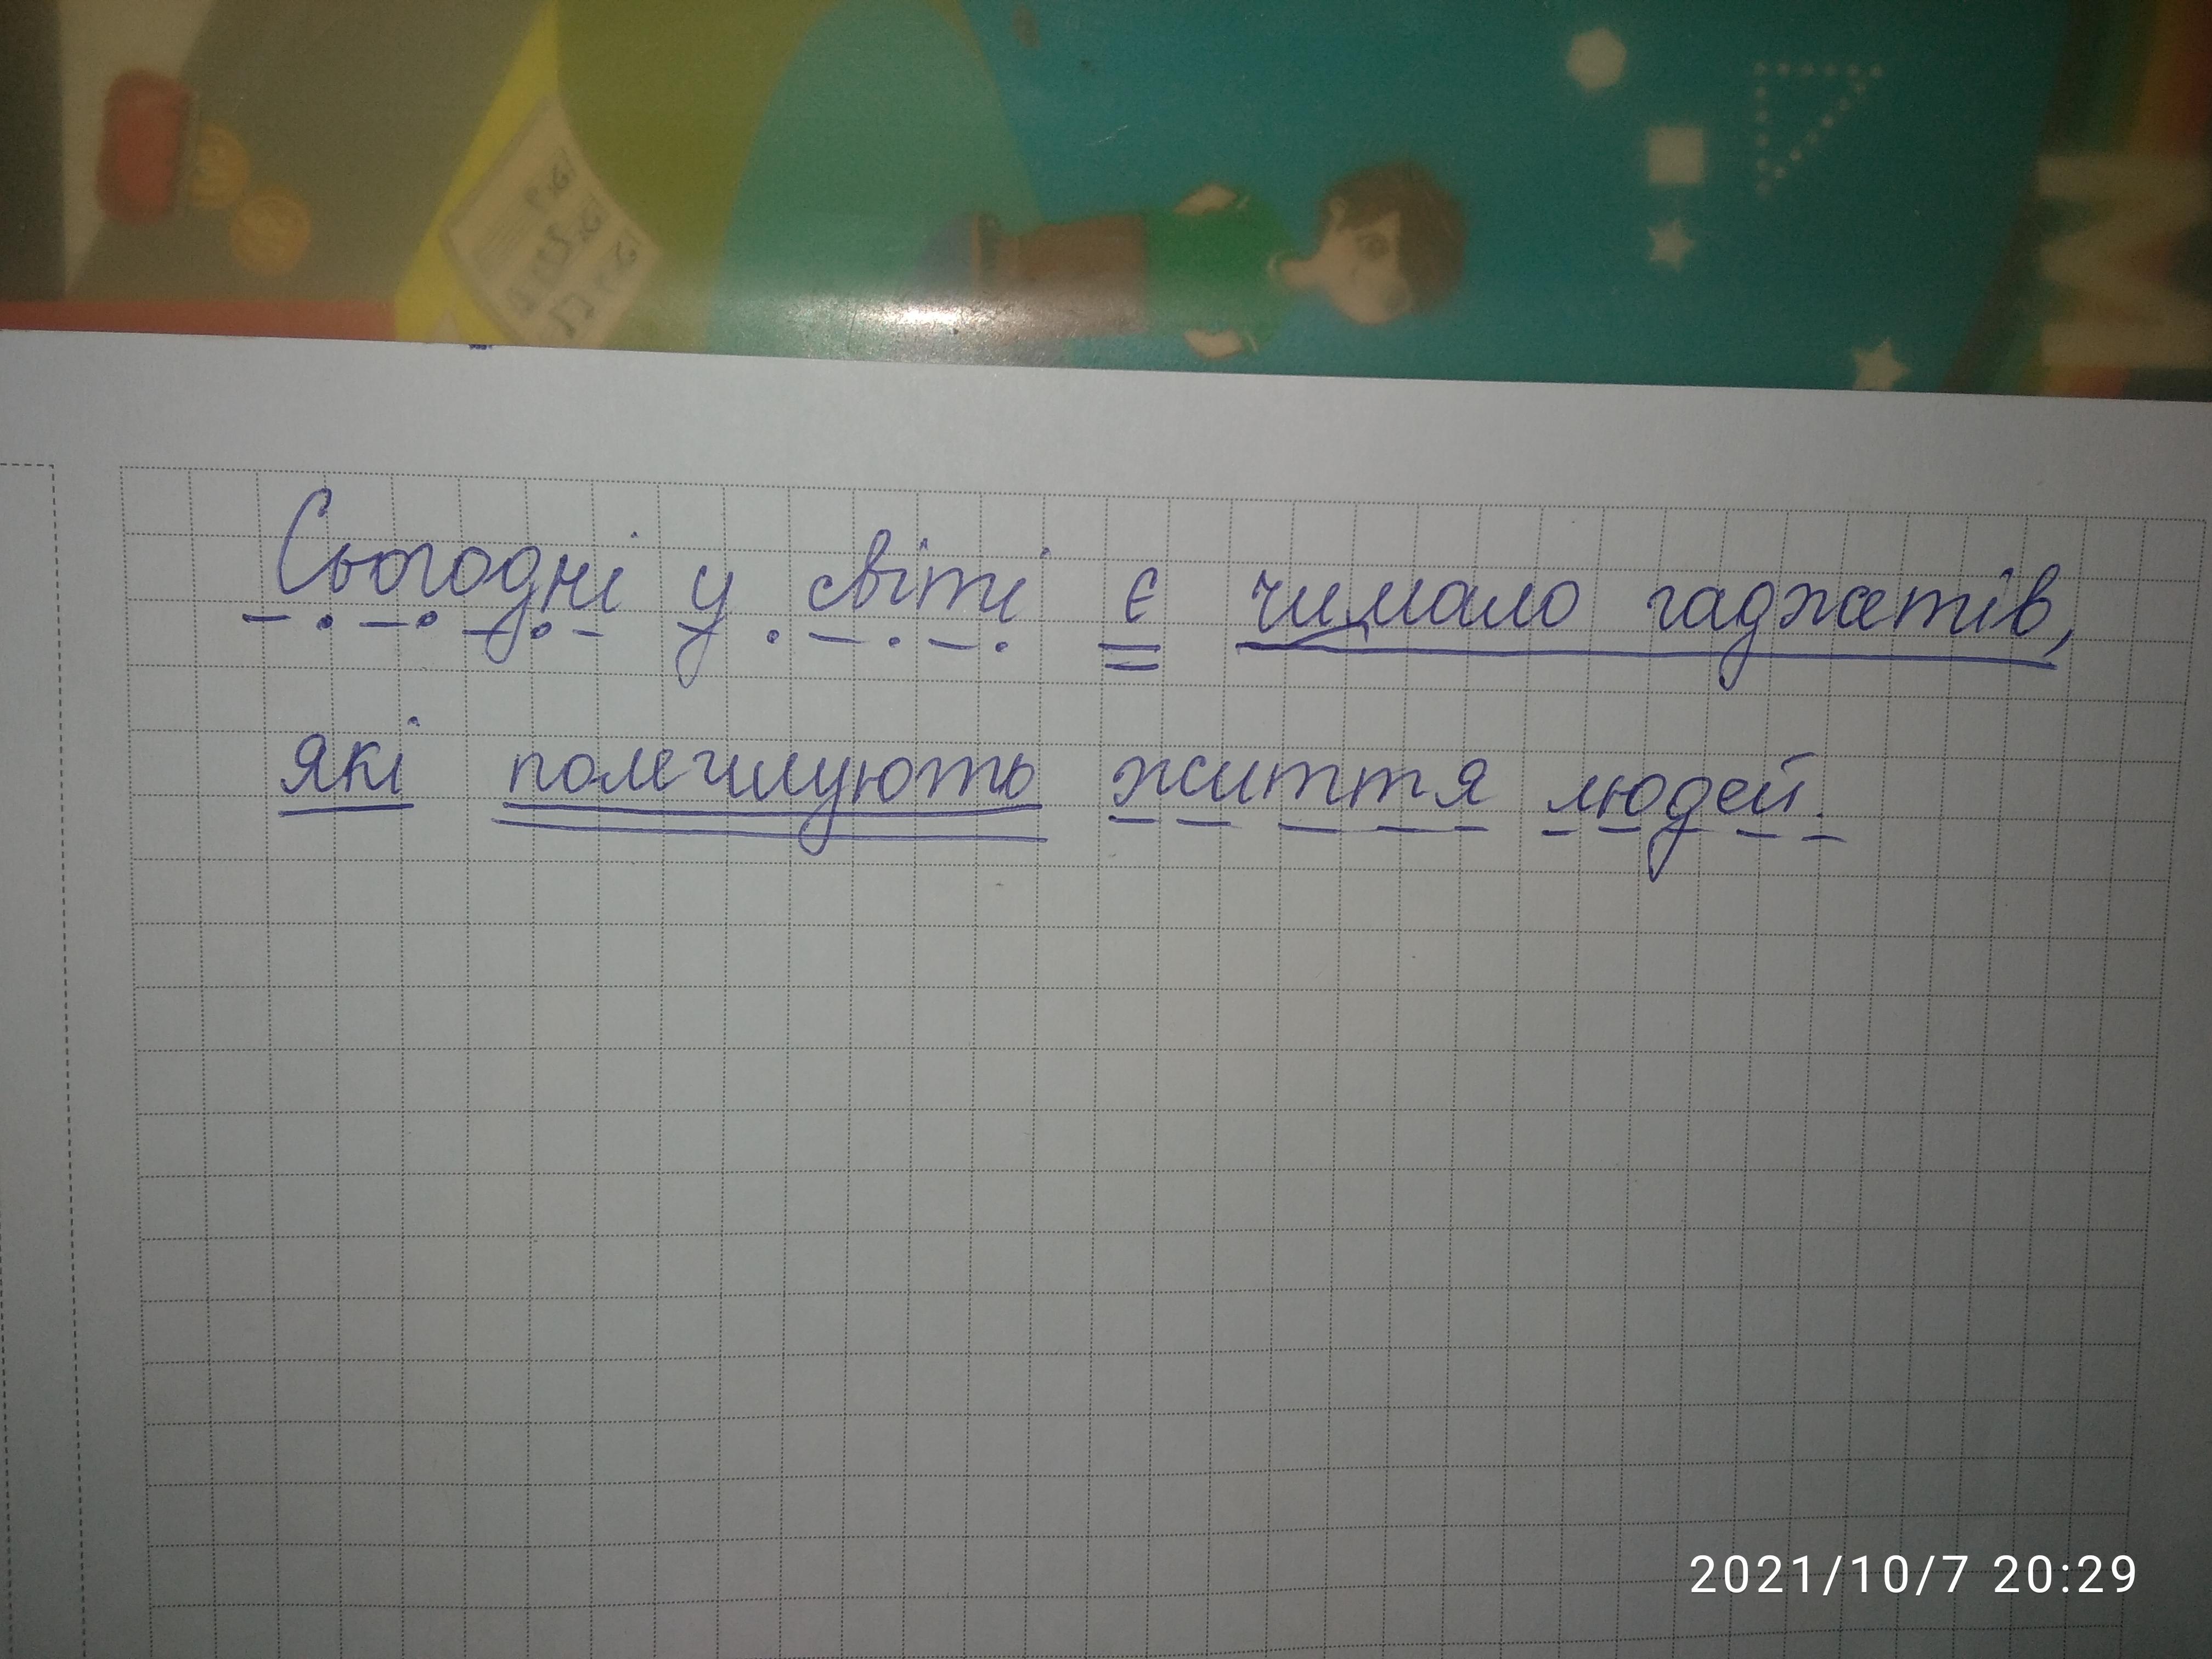 Сьогодні у світі є чимало гаджетів,
які полегшують життя людей.
2021/10/7 20:29